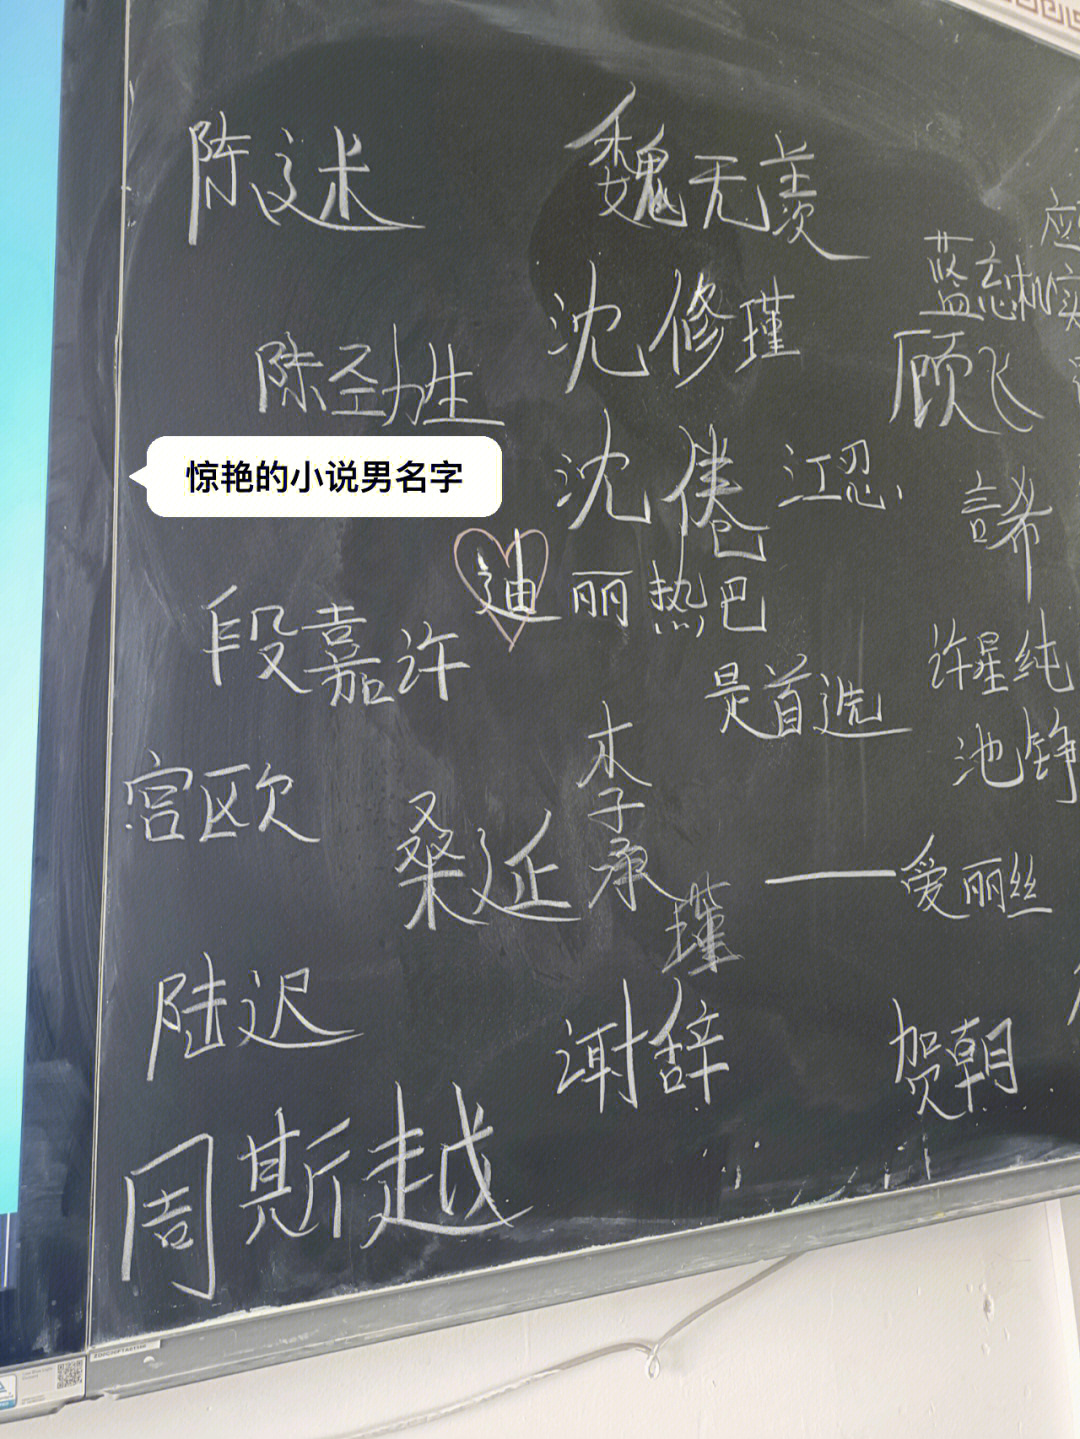 陈述
魏无羡
蓝忘机
沈修瑾
陈劲生
顾飞
惊艳的小说男名字
沈倦
江忍
言希
迪丽热巴
段嘉许
是首选
许星纯
池铮
宫欧
桑延
李承瑾
——爱丽丝
陆迟
谢辞
贺朝
周斯越